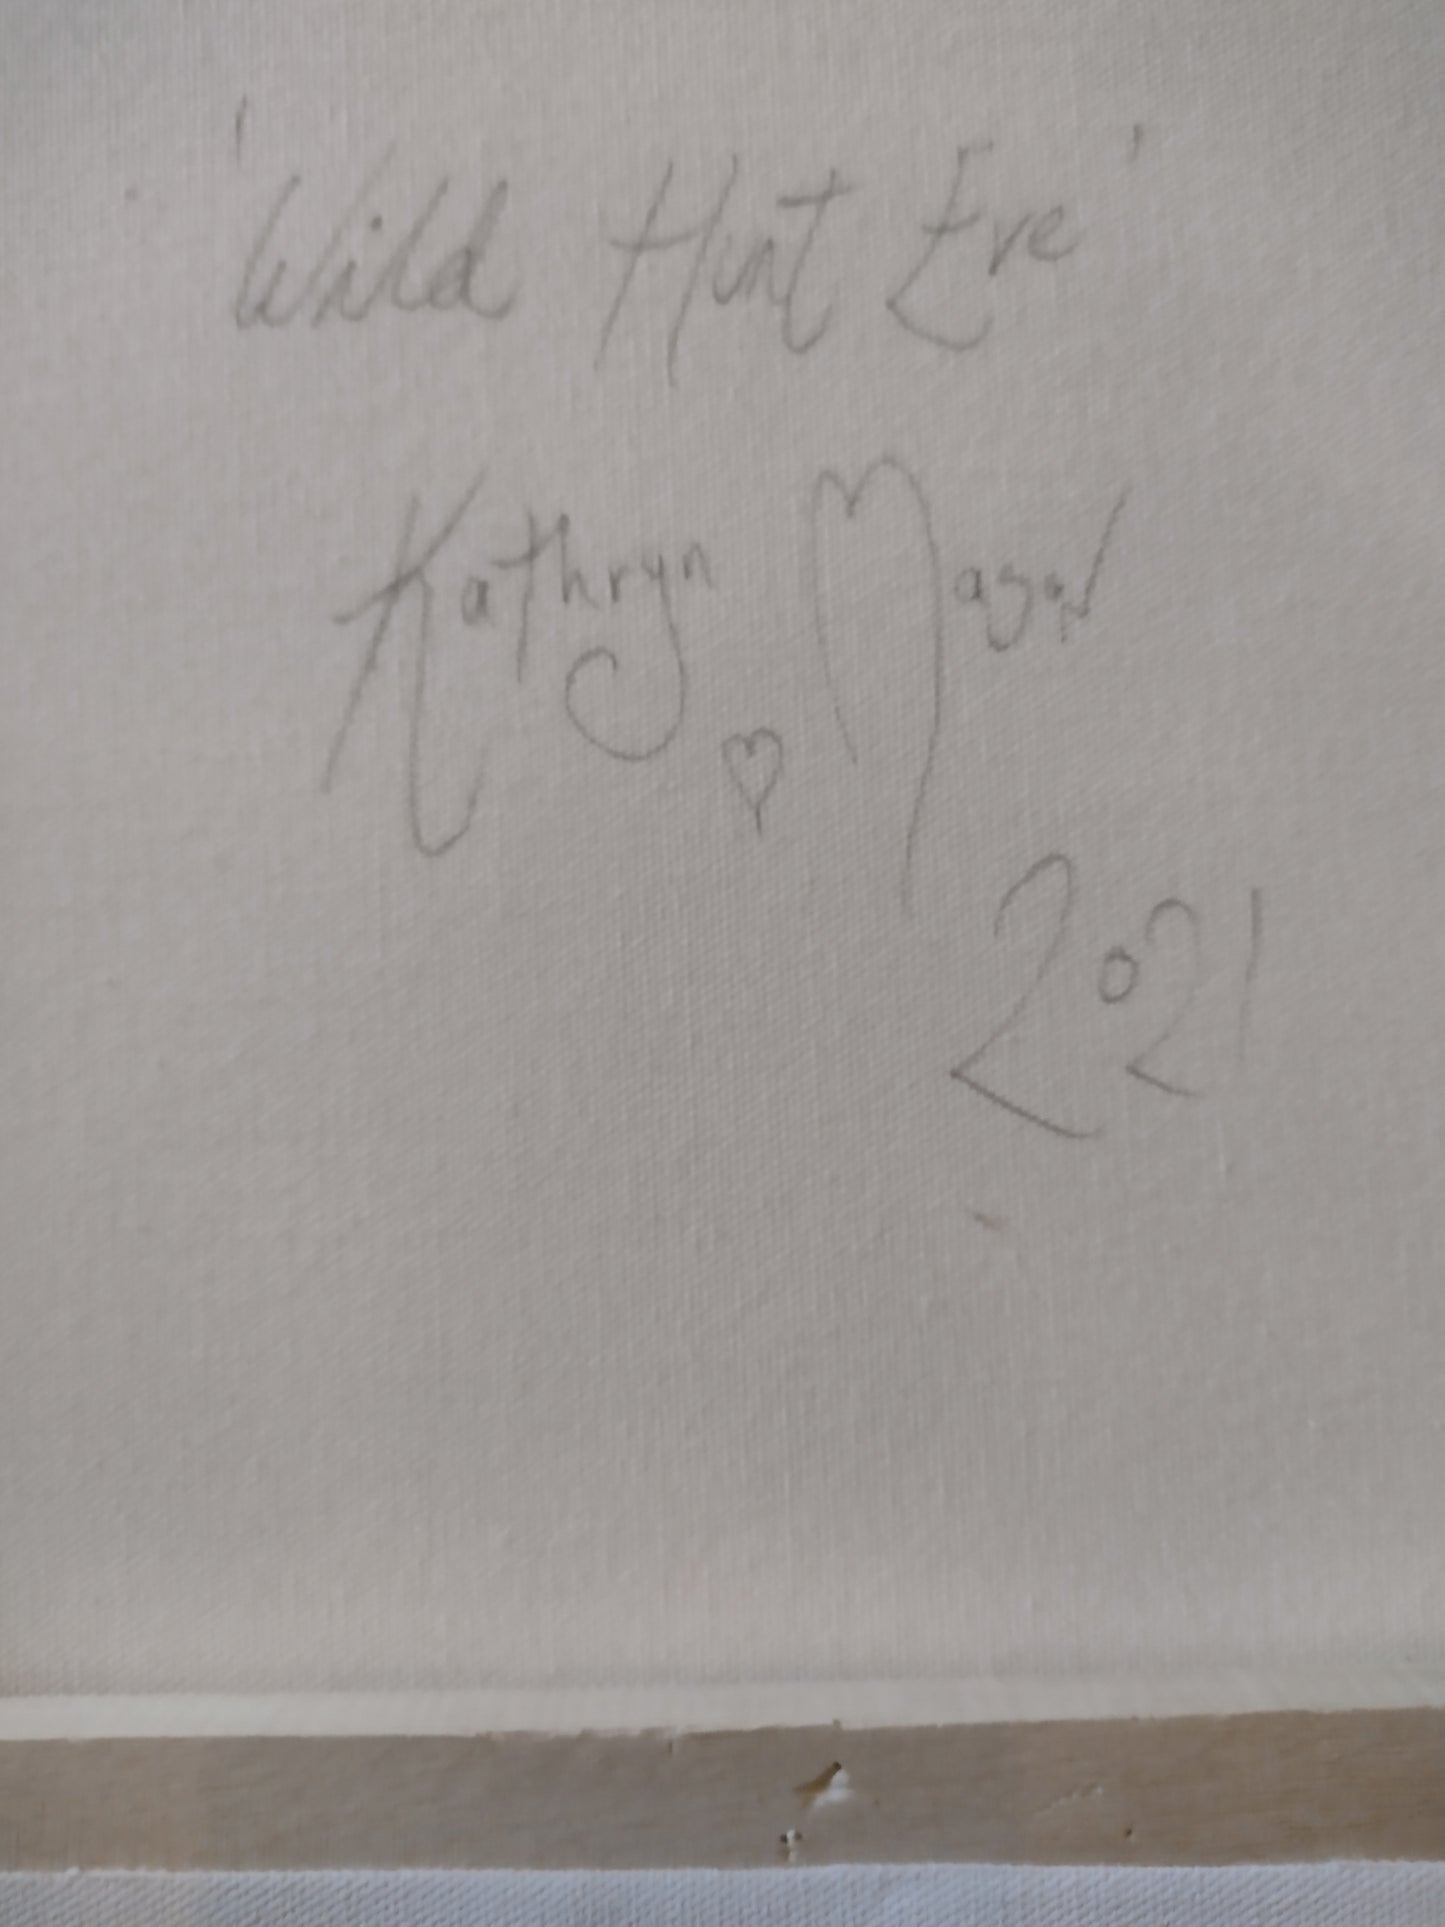 'Wild Hunt Eve'
Kathryn Mason
2021